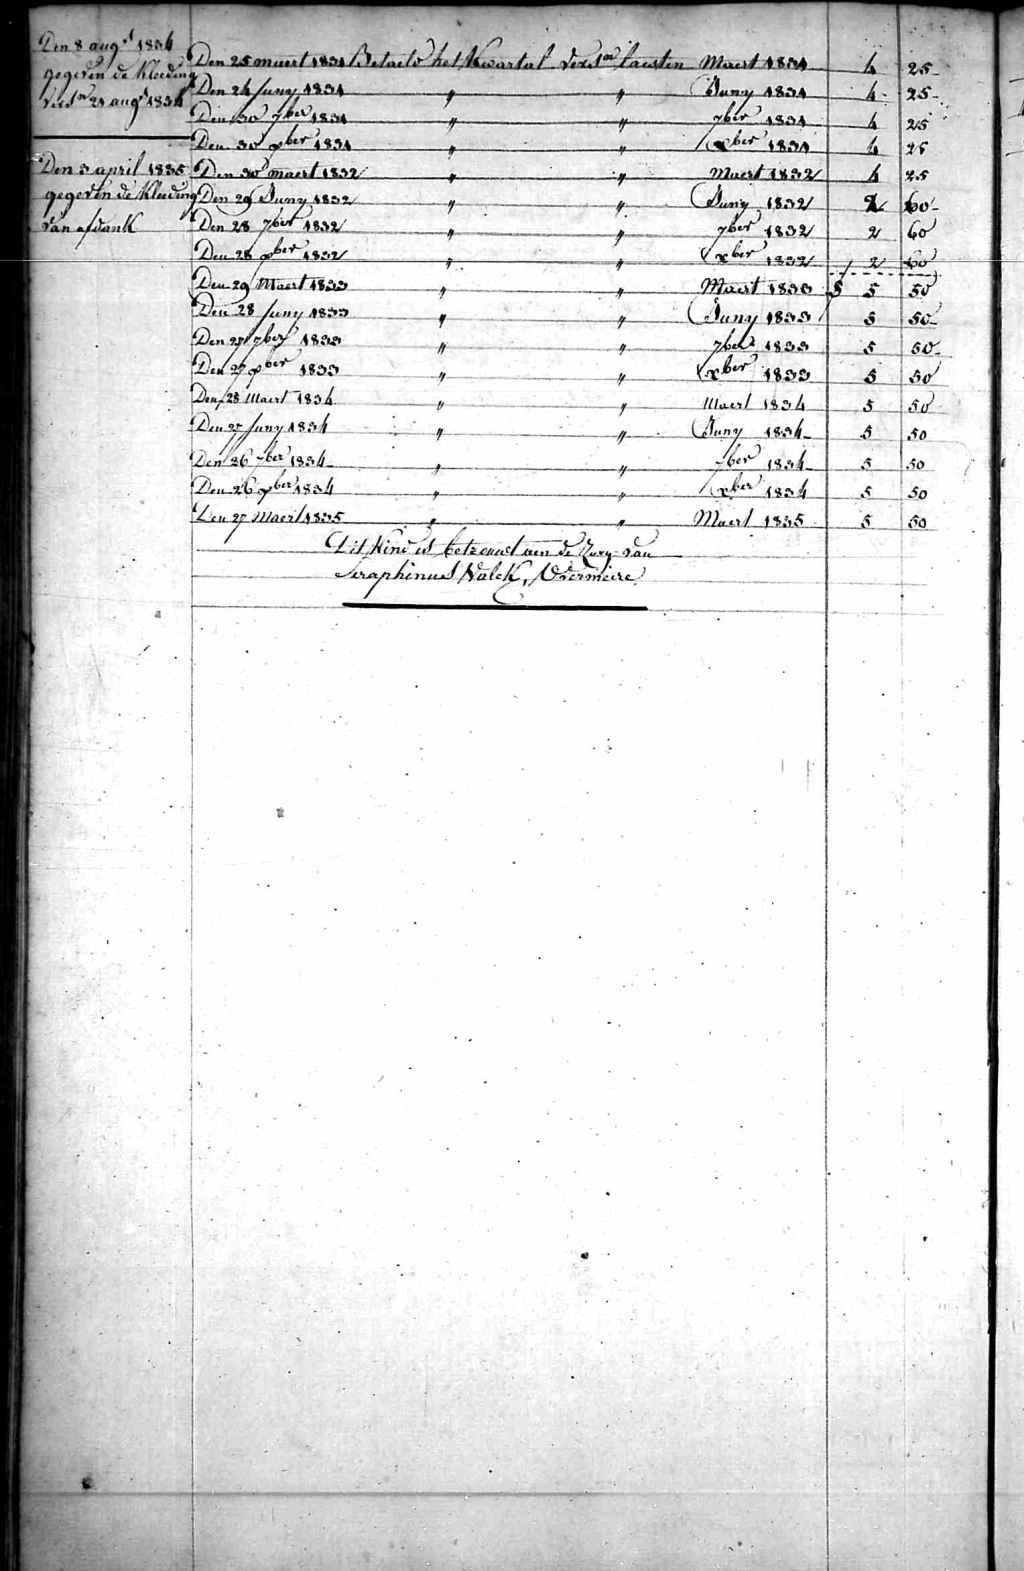 Den 8 aug.t 1834
gegeven de kleeding
vers.n 21 aug.t 1834
Den 3 april 1835
gegeven de kleeding
van afdank
Den 25 maert 1831 Betaeld het Kwartael vers.en laesten Maert 1831 4 25
Den 24 Juny 1831 " " Juny 1831 4 25
Den 30 7ber 1831 " " 7ber 1831 4 25
Den 30 xber 1831 " " xber 1831 4 25
Den 30 maert 1832 " " Maert 1832 4 25
Den 29 Juny 1832 " " Juny 1832 2 60
Den 28 7ber 1832 " " 7ber 1832 2 60
Den 28 xber 1832 " " xber 1832 2 60
Den 29 Maert 1833 " " Maert 1833 5 50
Den 28 Juny 1833 " " Juny 1833 5 50
Den 27 7ber 1833 " " 7ber 1833 5 50
Den 27 xber 1833 " " xber 1833 5 50
Den 28 Maert 1834 " " Maert 1834 5 50
Den 27 Juny 1834 " " Juny 1834 5 50
Den 26 7ber 1834 " " 7ber 1834 5 50
Den 26 xber 1834 " " xber 1834 5 50
Den 27 Maert 1835 " " Maert 1835 5 50
Dit Kind is betrouwt aen de Zorg van
Seraphinus Valck, Overmeire